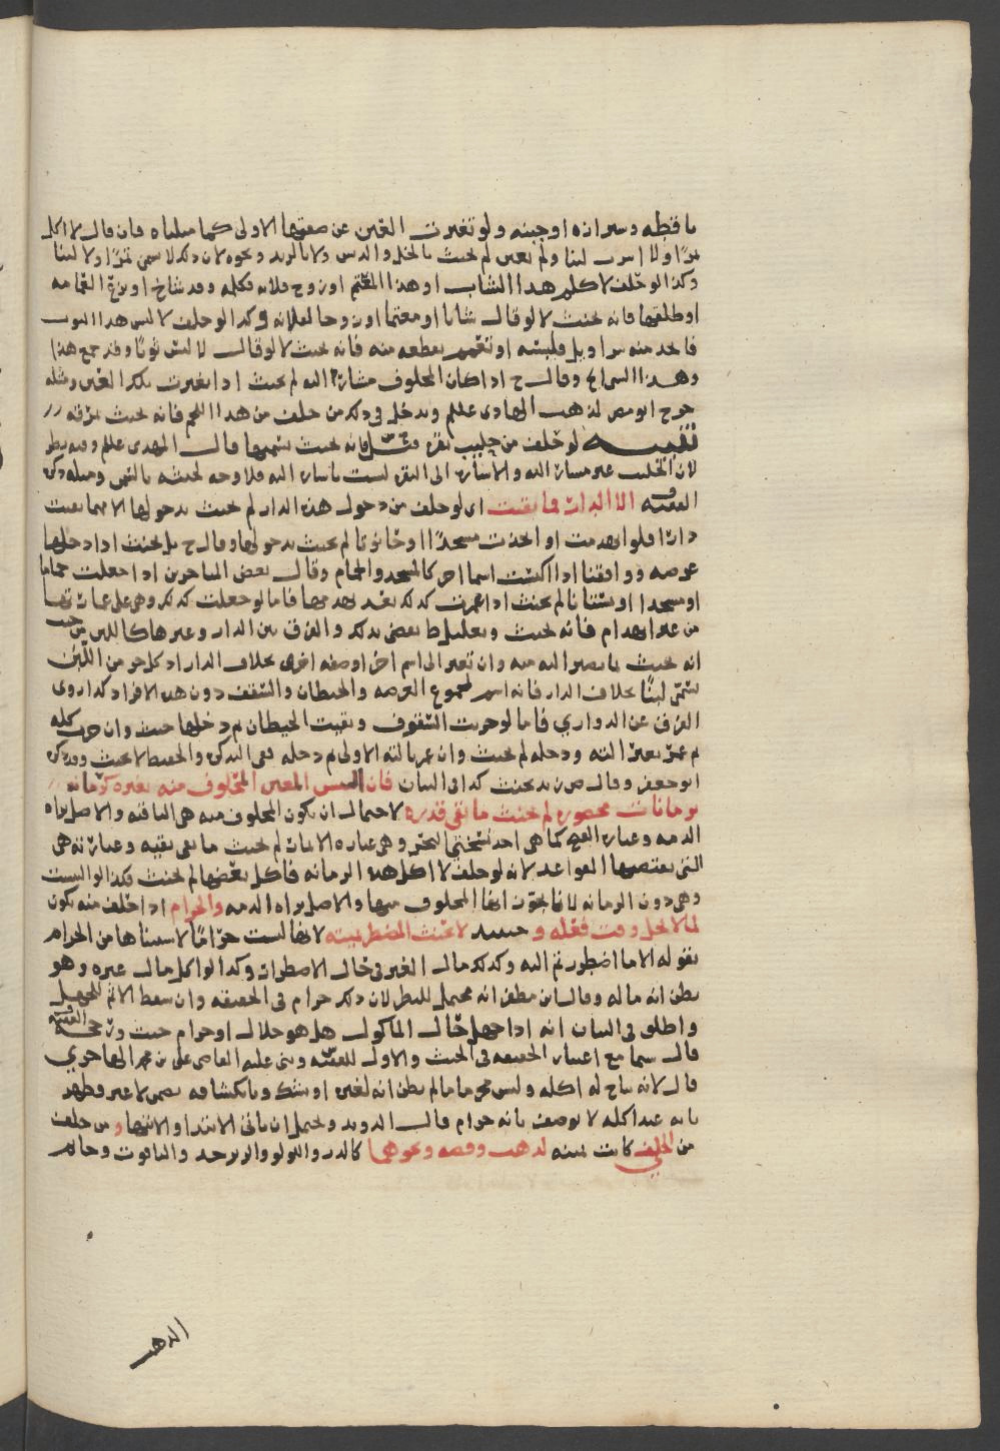 باقطه وسيرازه اوجبنه ولو تغيرت العين عن صفتها الاولى كما مثلناه فان قال لا اكل
تمرًا ولا اشرب لبنا ولم يعين لم يحنث بالخل والدبس ولا بالزبد ونحوه لان ذلك لا يسمى تمرًا ولا لبنا
وكذا لو حلف لا كلم هذا الشاب او هذا المعتم او زوج فلانه فكلمه وقد شاخ او نزع العمامه
او طلقها فانه يحنث لا لو قال شابا او معتما او زوجا لفلانه وكذا لو حلف لا لبس هذا الثوب
فاتخذ منه سراويل فلبسه او تعمم بقطعه منه فانه يحنث لا لو قال لا لبس ثوبًا وقد جمع هذا
وهذا السماع وقال ح اذا كان المحلوف مشارًا اليه لم يحنث اذا تغيرت تلك العين ومثله
خرج ابو مضر لمذهب الهادي علىلم ويدخل في ذلك من حلف من هذا اللحم فانه يحنث بمرقه
تنبيه لو حلف من حليب بقره فانه يحنث بسمنها قال المهدي علىلم وفيه نظر
لان الحليب غير مشار اليه والاشاره الى البقره ليست باشاره اليه فلا وجه لحنثه بالسمن ومثله ذكره
الفقيه الا الدار فما بقيت اي لو حلف من دخول هذه الدار لم يحنث بدخولها الا مهما بقيت
دارًا فلو انهدمت او اتخذت مسجدًا او حانوتا لم يحنث بدخولها وقال ح بل يحنث اذا دخلها
عرصه ووافقنا اذا اكتسبت اسما اخر كالمسجد والحمام وقال بعض المتاخرين اذا جعلت حماما
او مسجدا او بستانا لم يحنث اذا عمرت كذلك بعد هدمها فاما لو جعلت كذلك وهي على عمارتها
من غير انهدام فانه يحنث وتعليل ط يقضي بذلك والفرق بين الدار وغيرها كاللبن من حيث
انه يحنث بما يصير اليه منه وان تغير الى اسم اخر او صفه اخرى بخلاف الدار اذ كل جزء من اللبن
يسمى لبنًا بخلاف الدار فانه اسم لمجموع العرصه والحيطان والسقف دون هذه الافراد كذا روى
الفرق عن الدواري فاما لو خربت السقوف وبقيت الحيطان ثم دخلها حنث وان خرب كله
ثم عمر بغير الته ودخله لم يحنث وان عمر بالته الاولى ثم دخله ففي التذكره والحفيظ لا يحنث وذكره
ابو جعفر وقال ص زيد يحنث كذا في البيان فان التبس المعين المحلوف منه بغيره كرمانه
برمانات محصوره لم يحنث ما بقي قدره لاحتمال ان يكون المحلوف منه هي الباقيه والاصل براه
الذمه وعباره الفتح كما هي احد نسختي البحر وهي عباره الاثمار لم يحنث ما بقي بقيه وعبارته هي
التي يقتضيها القواعد لانه لو حلف لا اكل هذه الرمانه فاكل بعضها لم يحنث وكذا لو التبست
وهي دون الرمانه لانا نجوز انها المحلوف منها والاصل براه الذمه والحرام اذا حلف منه يكون
لما لا يحل وقت فعله وحينئذ لا يحنث المضطر بميته لانها ليست حرامًا لاستثناها من الحرام
بقوله الا ما اضطررتم اليه وكذلك مال الغير في حال الاضطرار وكذا لو اكل مال غيره وهو
يظن انه ماله وقال ابن مظفر انه محتمل للنظر لان ذلك حرام في الحقيقه وان سقط الاثم للجهل
واطلق في البيان انه اذا جهل حال الماكول هل هو حلال او حرام حنث ورجحه الفقيه
قال سيما مع اعتبار الحقيقه في الحنث والاول للفقيه وبنى عليه القاضي علي بن محمد الهاجري
قال لانه يباح له اكله وليس محرما ما لم يظن انه لغيره او يشك وبانكشافه يضمن لا غير فظهر
بانه عند اكله لا يوصف بانه حرام قال الذويد ويحتمل ان ياتي الابتدا والانتها ومن حلف
من الحلي كانت يمينه لذهب وفضه ونحوهما كالدر واللولو والزبرجد والياقوت وخاتم
الذهب